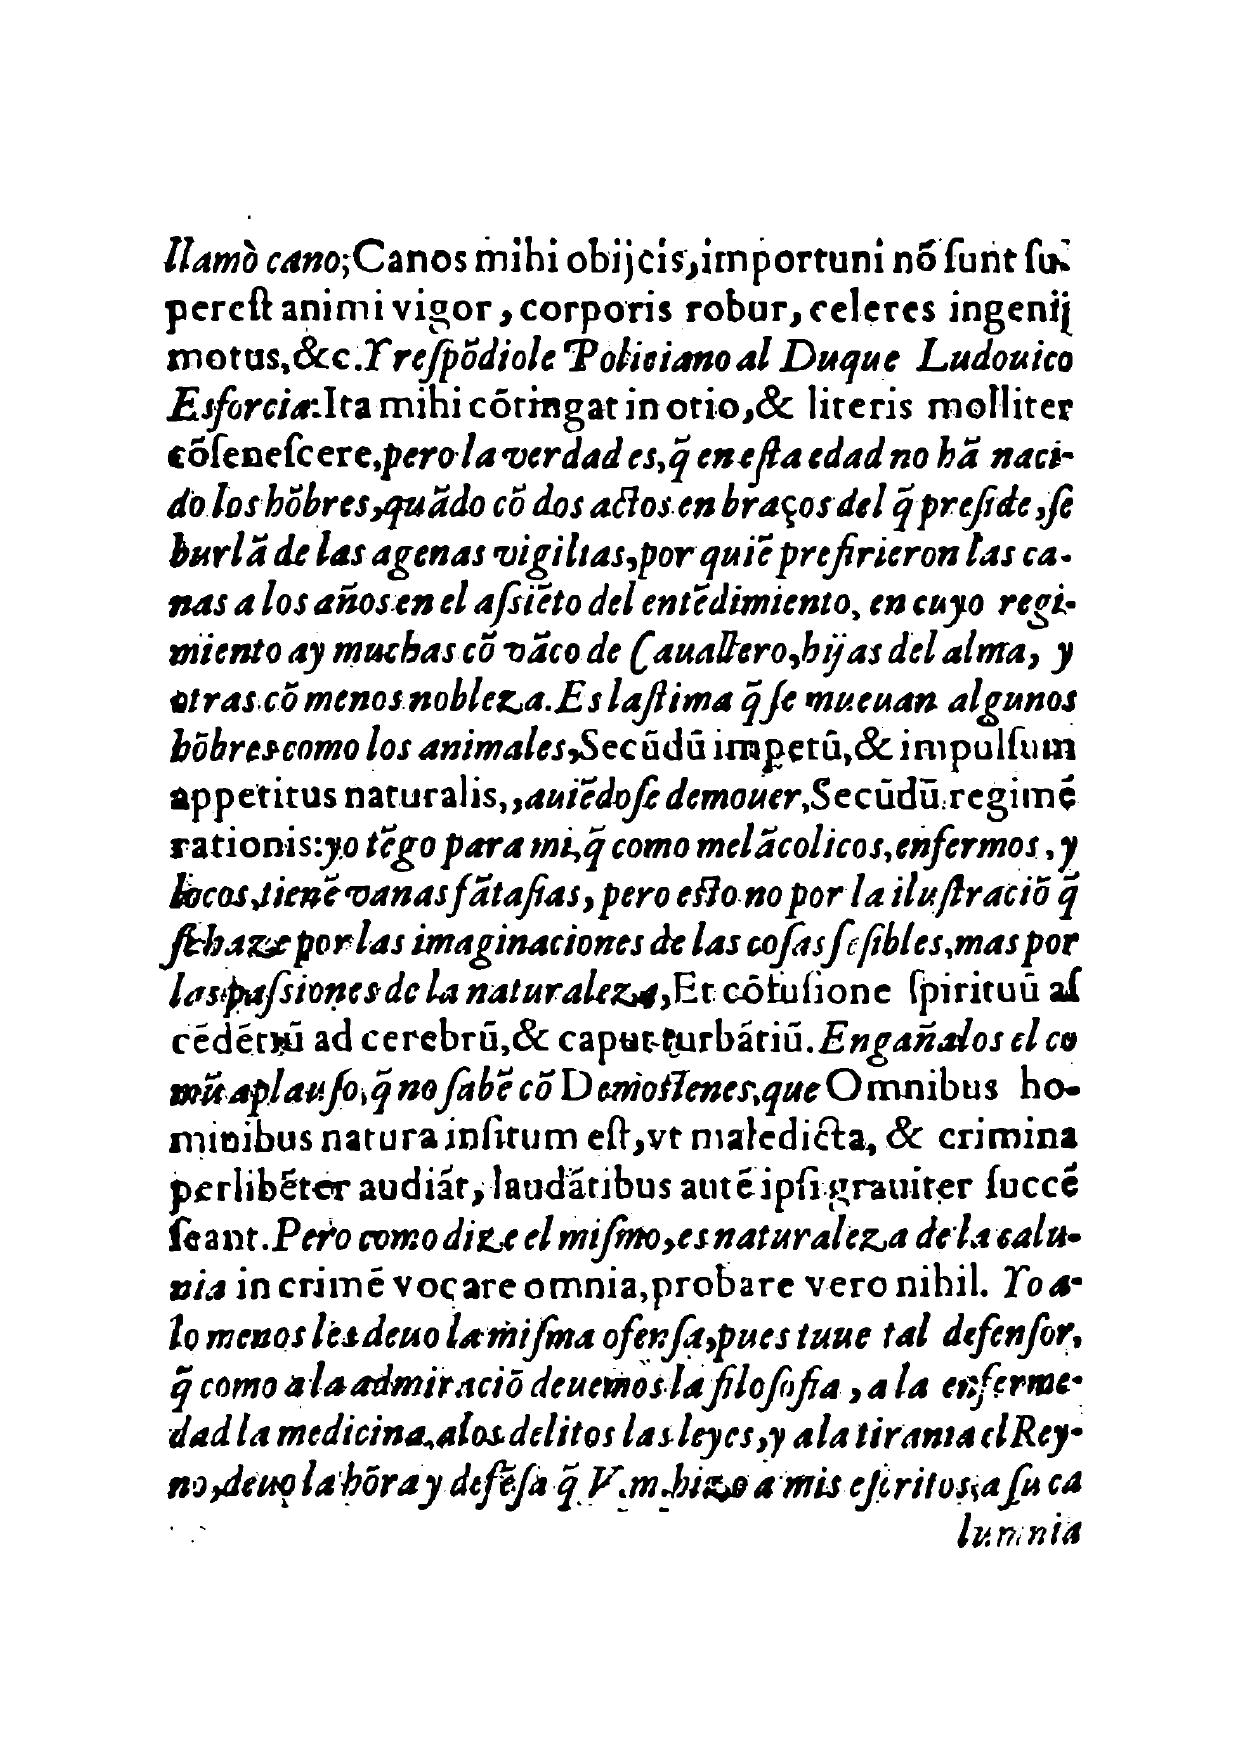 llamò cano;Canos mihi obijcis,importuni nõ ſunt ſu-
pereſt animi vigor, corporis robur, celeres ingenij
motus,&c.Y reſpõdiole Policiano al Duque Ludouico
Esforcia:Ita mihi cõtingat in otio,& literis molliter
cõſeneſcere,pero la verdad es,q̃ en eſta edad no hã naci-
do los hõbres,quãdo cõ dos actos en braços del q̃ preſide,ſe
burlã de las agenas vigilias,por quiẽ prefirieron las ca-
nas a los años en el aſsiẽto del entẽdimiento, en cuyo regi-
miento ay muchas cõ vãco de Cauallero,hijas del alma, y
otras cõ menos nobleza.Es laſtima q̃ ſe mueuan algunos
hõbres como los animales,Secũdũ impetũ,& impulſum
appetitus naturalis,,auiẽdoſe de mouer,Secũdũ regimẽ
rationis:yo tẽgo para mi,q̃ como melãcolicos,enfermos,y
locos,tienẽ vanas fãtaſias,pero eſto no por la iluſtraciõ q̃
ſe haze por las imaginaciones de las coſas ſẽſibles,mas por
las paſsiones de la naturaleza,Et cõfuſione ſpirituũ aſ
cẽdẽtiũ ad cerebrũ,& caput turbãtiũ.Engañalos el co
mũ aplauſo,q̃ no ſabẽ cõ Demoſtenes,que Omnibus ho-
minibus natura inſitum eſt,vt maledicta, & crimina
perlibẽter audiãt, laudãtibus autẽ ipſi grauiter ſuccẽ
ſeant.Pero como dize el miſmo,es naturaleza de la calu-
nia in crimẽ vocare omnia,probare vero nihil. Yo a-
lo menos les deuo la miſma ofenſa,pues tuue tal defenſor,
q̃ como a la admiraciõ deuemos la filoſofia, a la enferme-
dad la medicina,a los delitos las leyes,y a la tirania el Rey-
no,deuo la hõra y defẽſa q̃ V.m.hizo a mis eſcritos,a ſu ca
lumnia